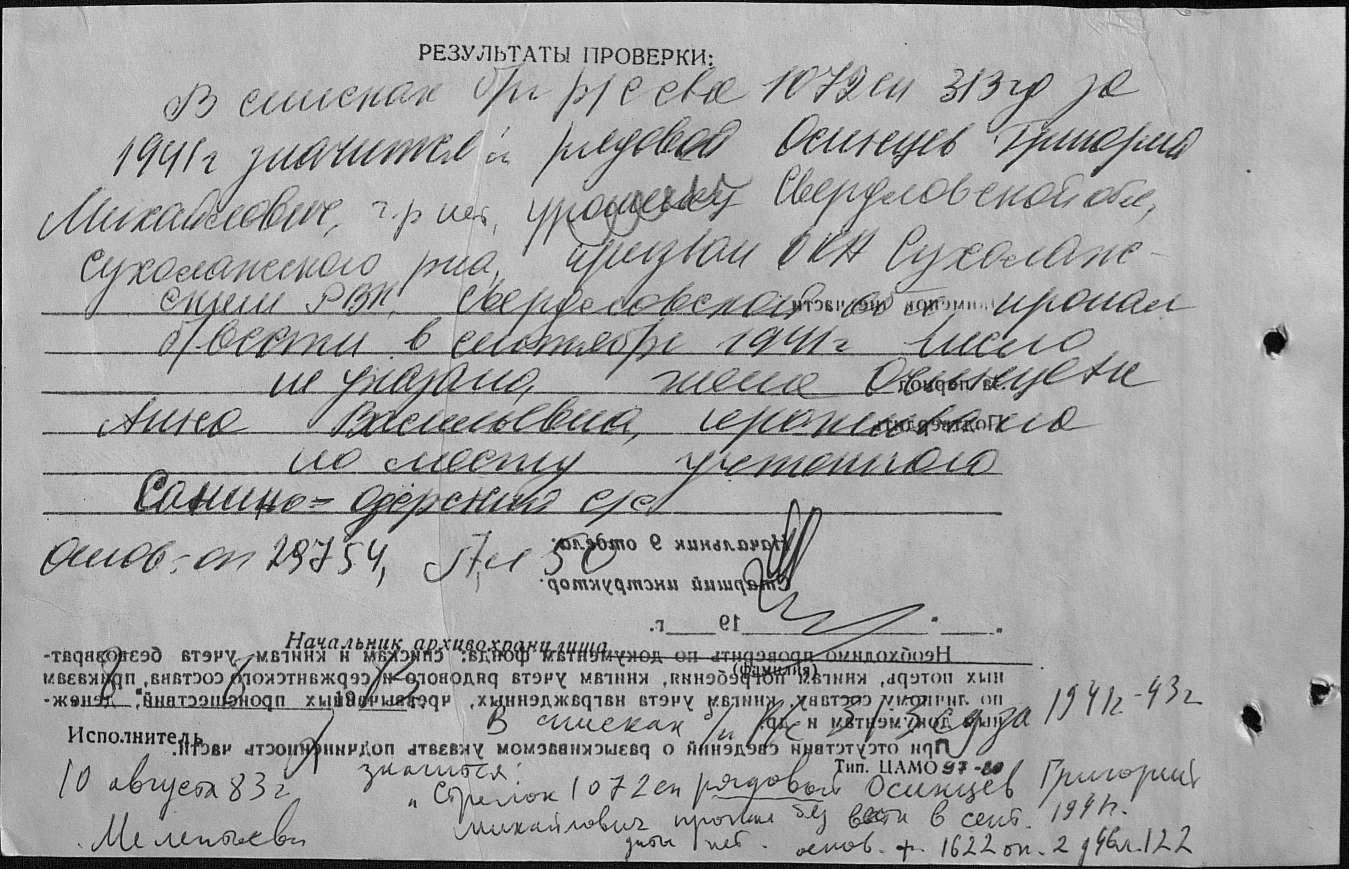 РЕЗУЛЬТАТЫ ПРОВЕРКИ:
В списках б/п р/с с-ва 1072 сп 313 сд за
1941 г значится: "рядовой Осинцев Григорий
Михайлович, г.р нет, урожен. Свердловской обл,
Сухоложского р-на, призван ОКН Сухолож-
ским РВК, Свердловской обл пропал
б/вести в сентябре 1941 г число
не указано, жена Осинцева
Анна Васильевна, проживала
по месту
Санино-Озерский с/с
Основ: оп 29754, л 50
Начальник 9 отдела:
Старший инструктор.
"___" ________ 19___г.
Начальник архивохранилища
(фамилия)
Необходимо проверить по документам фонда: спискам и книгам учета безвозврат-
ных потерь, книгам погребения, книгам учета рядового и сержантского состава, приказам
по личному составу, книгам учета награжденных, чрезвычайных происшествий, денеж-
ным документам и др.
При отсутствии сведений о разыскиваемом указать подчиненность части.
Исполнитель
Тип. ЦАМО 97-80
10 августа 83 г
В списках б/п р/с 313 сд за 1941г-43г
значится:
"Стрелок 1072 сп рядовой Осинцев Григорий
Михайлович пропал без вести в сент. 1941г.
даты нет. основ. ф. 1622 оп. 2 д 46 л. 122